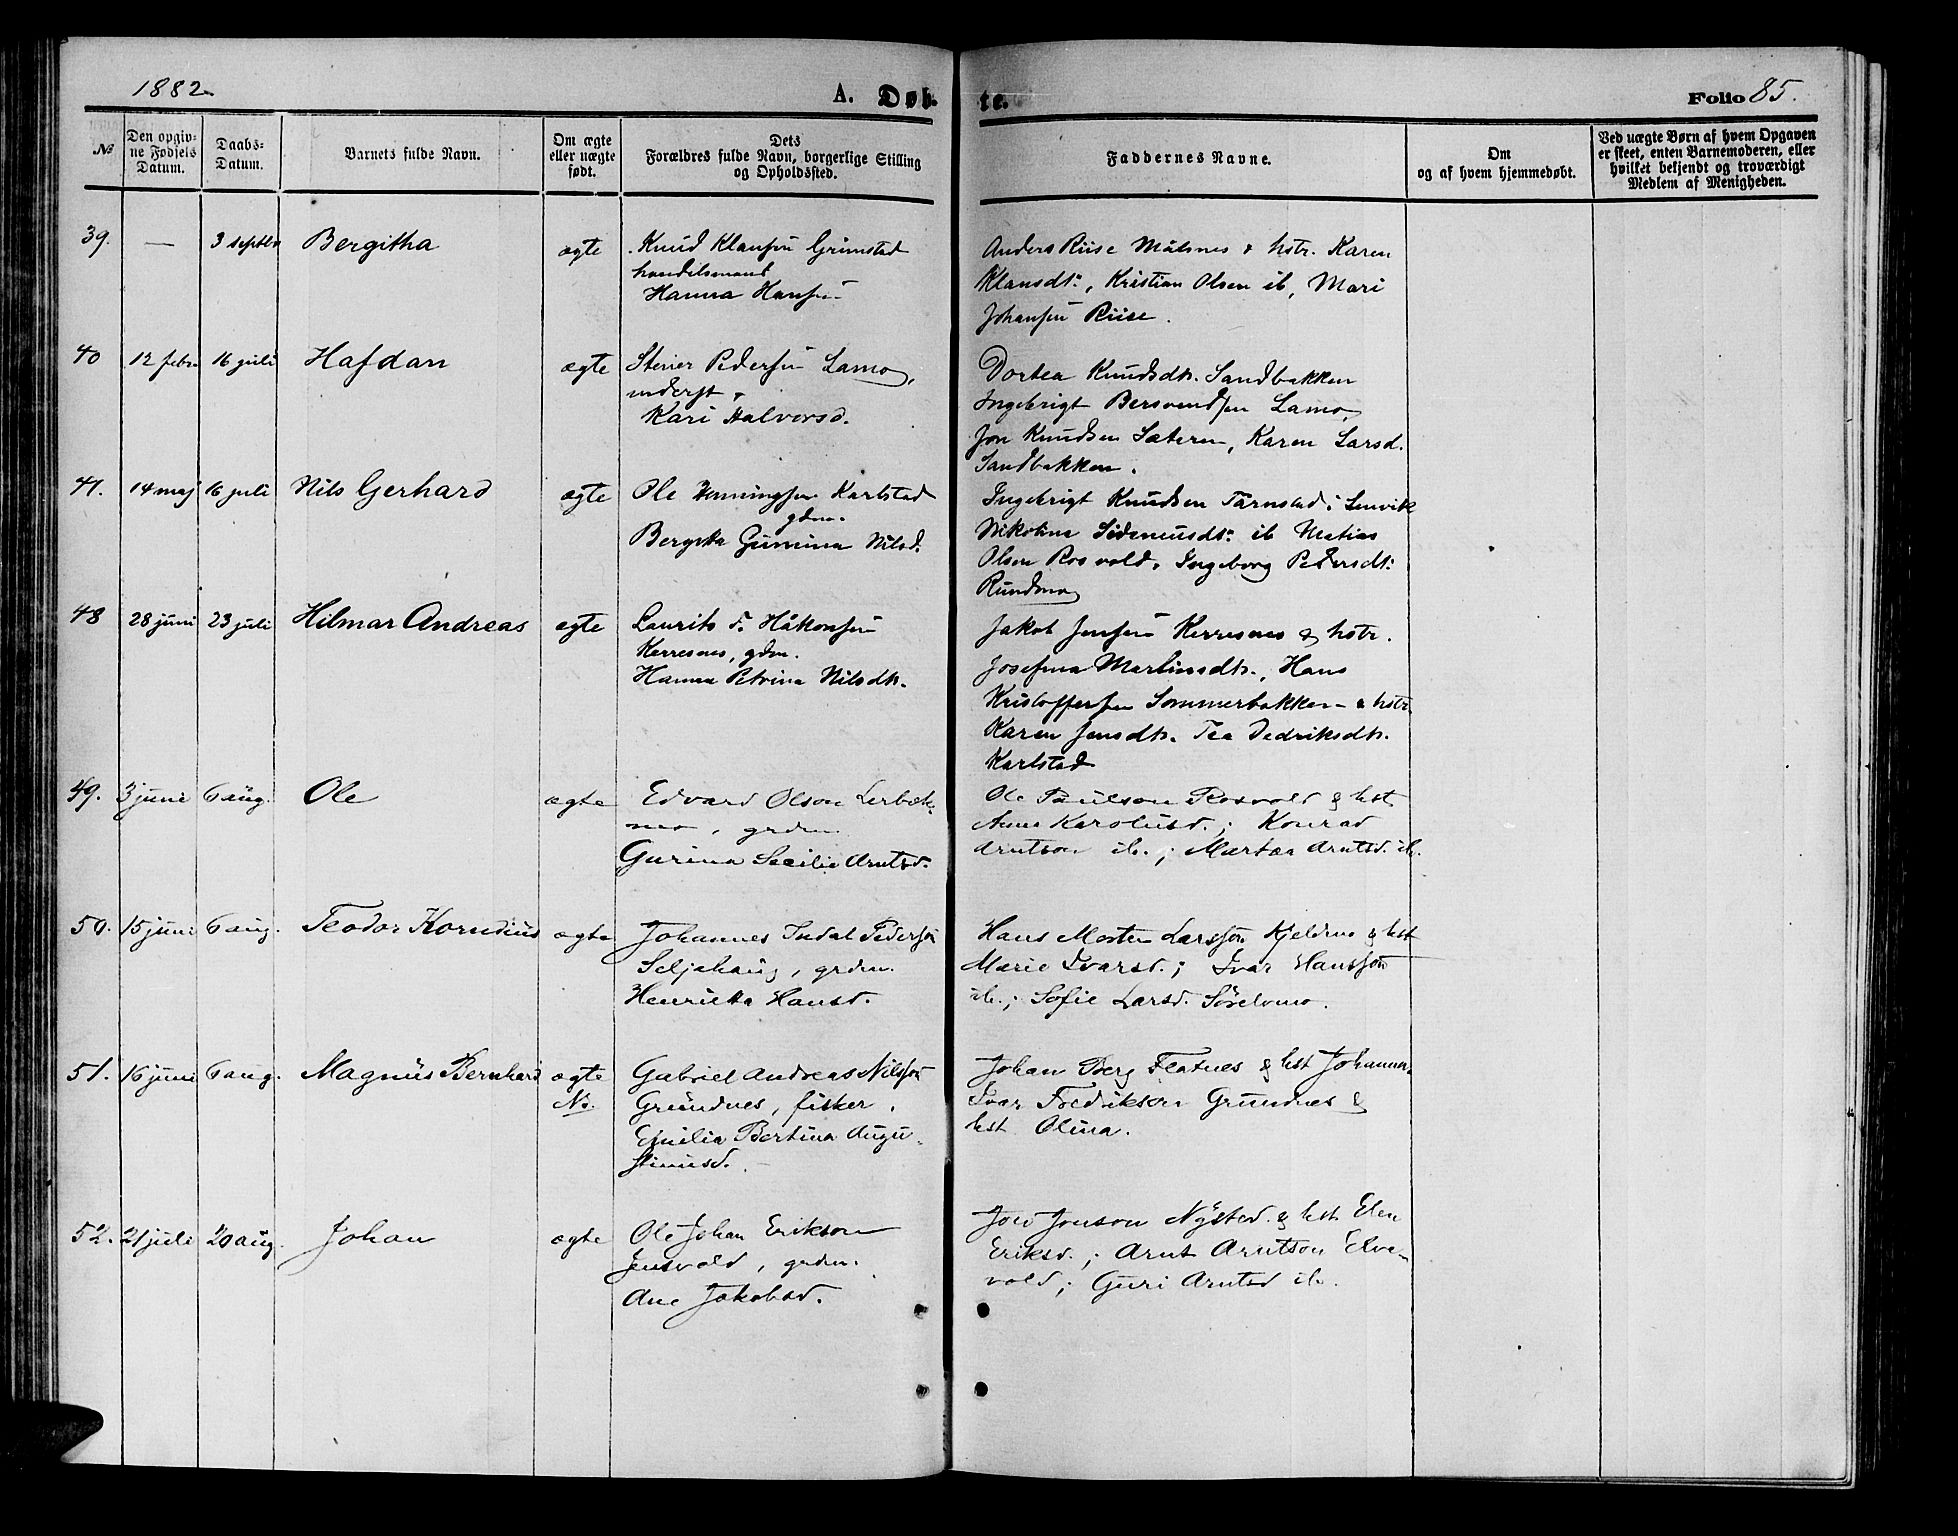 1882
A. Døbte.
Folio 85.
№
Den opgivne Fødsels Datum.
Daabs-Datum.
Barnets fulde Navn.
Om ægte eller uægte født.
Dets Forældres fulde Navn, borgerlige Stilling og Opholdssted.
Faddernes Navne.
Om og af hvem hjemmedøbt.
Ved uægte Børn af hvem Opgaven er skeet, enten Barnemoderen, eller hvilket bekjendt og troværdigt Medlem af Menigheden.
39. — 3 septbr Bergitha ægte
Knud Klausen Grimstad
handelsmand
Hanna Hansen
Anders Riise Målsnes & hstr. Karen
Klausdt., Kristian Olsen ib, Mari
Johansen Riise.
40 12 febr 16 juli Hafdan ægte
Stener Pedersen Lamo,
inderst &
Kari Halvorsd.
Dortea Knudsdtr. Sandbakken
Ingebrigt Bersvendsen Lamo,
Jon Knudsen Sæteren, Karen Larsd.
Sandbakken.
41. 14 maj 16 juli Nils Gerhard ægte
Ole Henningsen Karlstad
gdm.
Bergitta Gurina Nilsd.
Ingebrigt Knudsen Tårnstad i Lenvik
Nikolina Sidsmusdt. ib Matias
Olsen Rosvold, Ingeborg Pedersdt.
Rundmo
48 28 juni 23 juli Hilmar Andreas ægte
Laurits F. Håkonsen
Kerresnes, gdm.
Hanna Petrina Nilsdtr.
Jakob Jensen Kerresnes & hstr.
Josefina Martinusdtr., Hans
Kristoffersen Sommerbakken & hstr.
Karen Jensdtr. Tea Dedriksdtr.
Karlstad
49. 3 juni 6 aug. Ole ægte
Edvard Olson Lerbæk-
mo, grdm.
Gurina Secilie Arntsd.
Ole Paulson Rosvold & hst
Anne Karolusd.; Konrad
Arntson ib.; Martea Arntsd. ib.
50. 15 juni 6 aug. Teodor Kornelius ægte
Johannes Indal Pederson
Seljehaug, grdm.
Henrietta Hansd.
Hans Morten Larsson Kjeldmo & hst
Marie Ivarsd.; Ivar Hansson
ib.; Sofie Larsd. Sørelvmo.
51. 16 juni 6 aug. Magnus Bernhard ægte
No.
Gabriel Andreas Nilsson
Grundnes, fisker.
Emilia Bertina Augu-
stinusd.
Johan Berg Fletnes & hst Johanna.
Ivar Fredrikson Grundnes &
hst Olina.
52. 21 juli 20 aug. Johan ægte
Ole Johan Erikson
Jensvold, grdm.
Ane Jakobsd.
Jon Jonson Nysted & hst Elen
Eriksd.; Arnt Arntson Elve-
vold; Guri Arntsd ib.